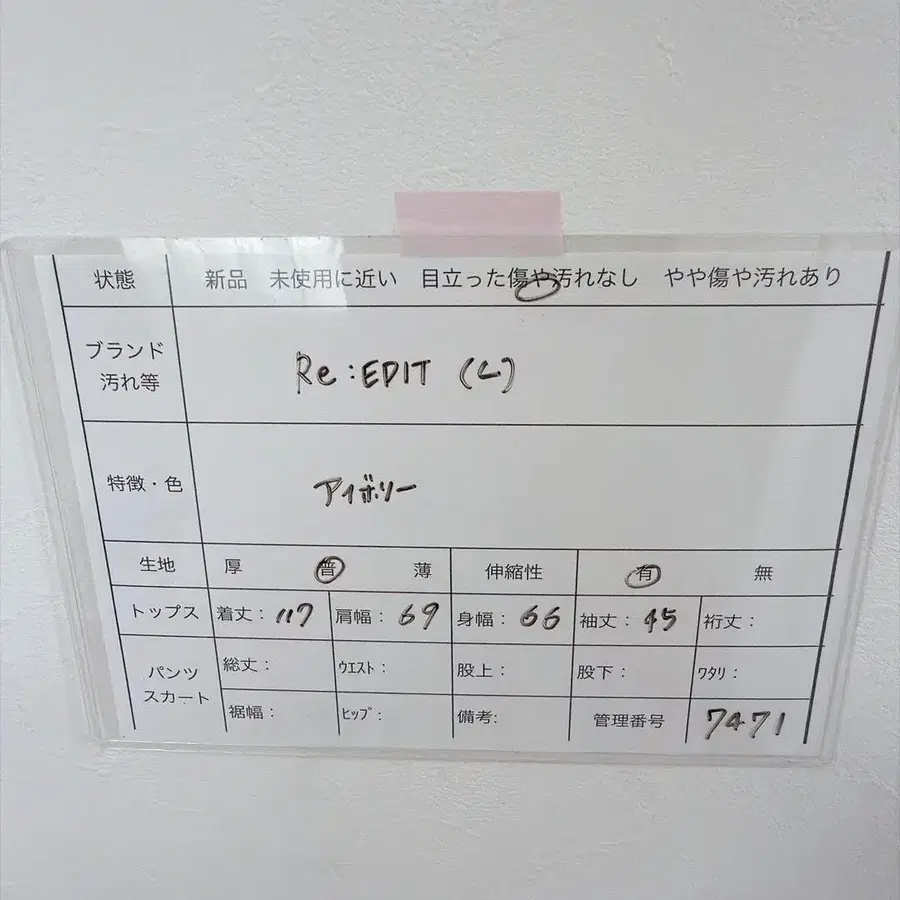 状態 新品 未使用に近い 目立った傷や汚れなし やや傷や汚れあり
ブランド
汚れ等
Re:EDIT (L)
特徴・色 アイボリー
生地 厚 普 薄 伸縮性 有 無
トップス 着丈: 117 肩幅: 69 身幅: 66 袖丈: 45 裄丈:
パンツ
スカート
総丈: ウエスト: 股上: 股下: ワタリ:
裾幅: ヒップ: 備考: 管理番号 7471